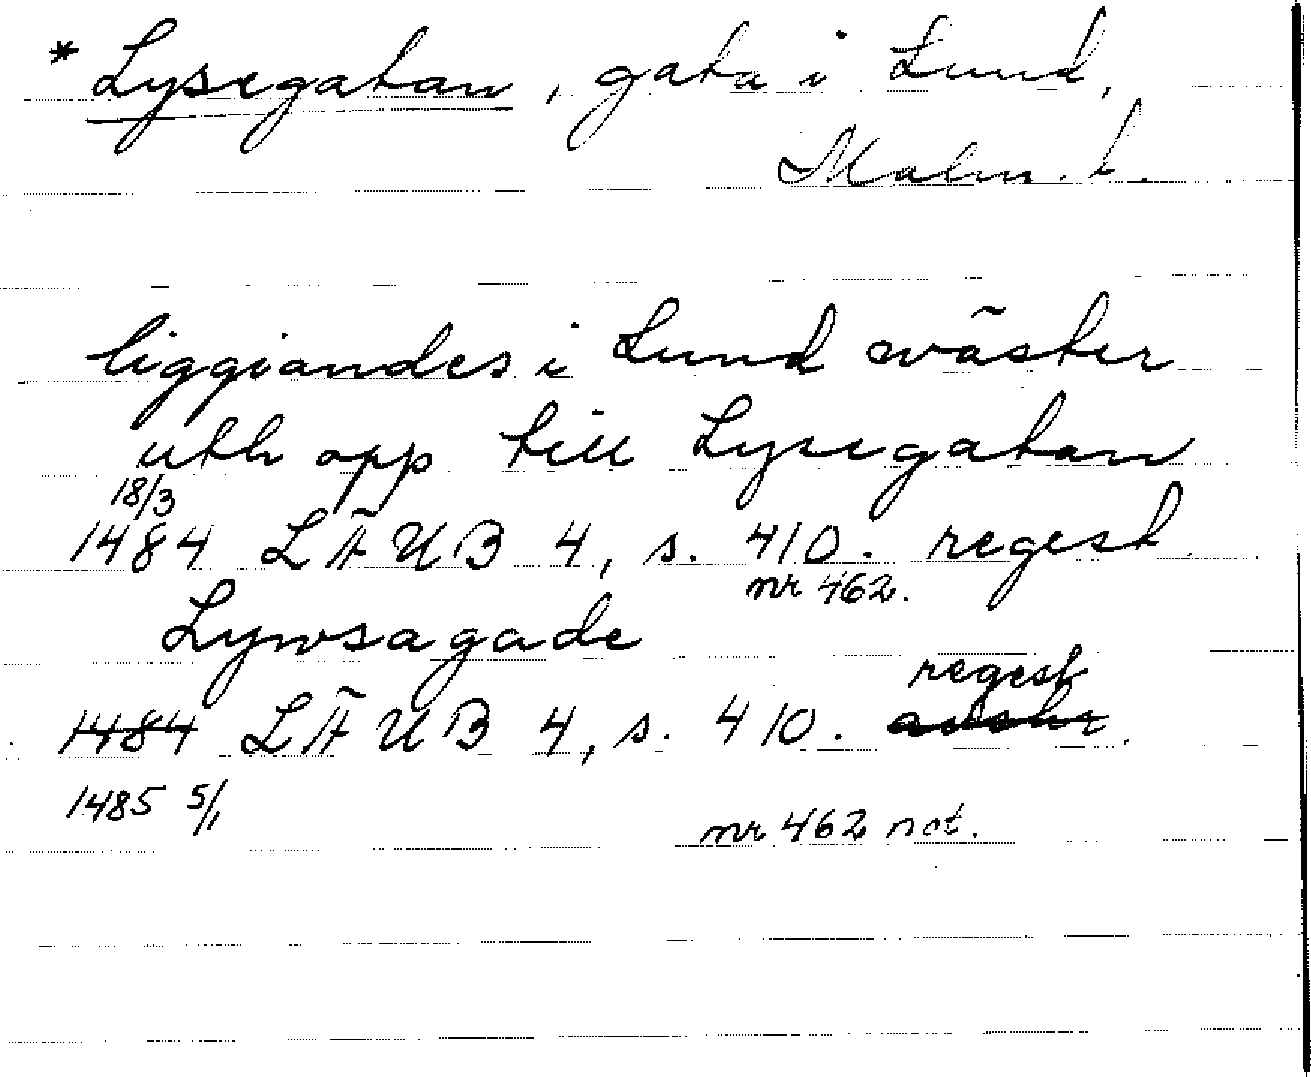 * Lysegatan, gata i Lund,
Malm. l.
liggiandes i Lund wäster
uth opp till Lysegatan
18/3
1484 LÄUB 4, s. 410. regest
nr 462.
Lywsagade
regest
1484 LÄUB 4, s. 410. avskr.
1485 5/1
nr 462 not.